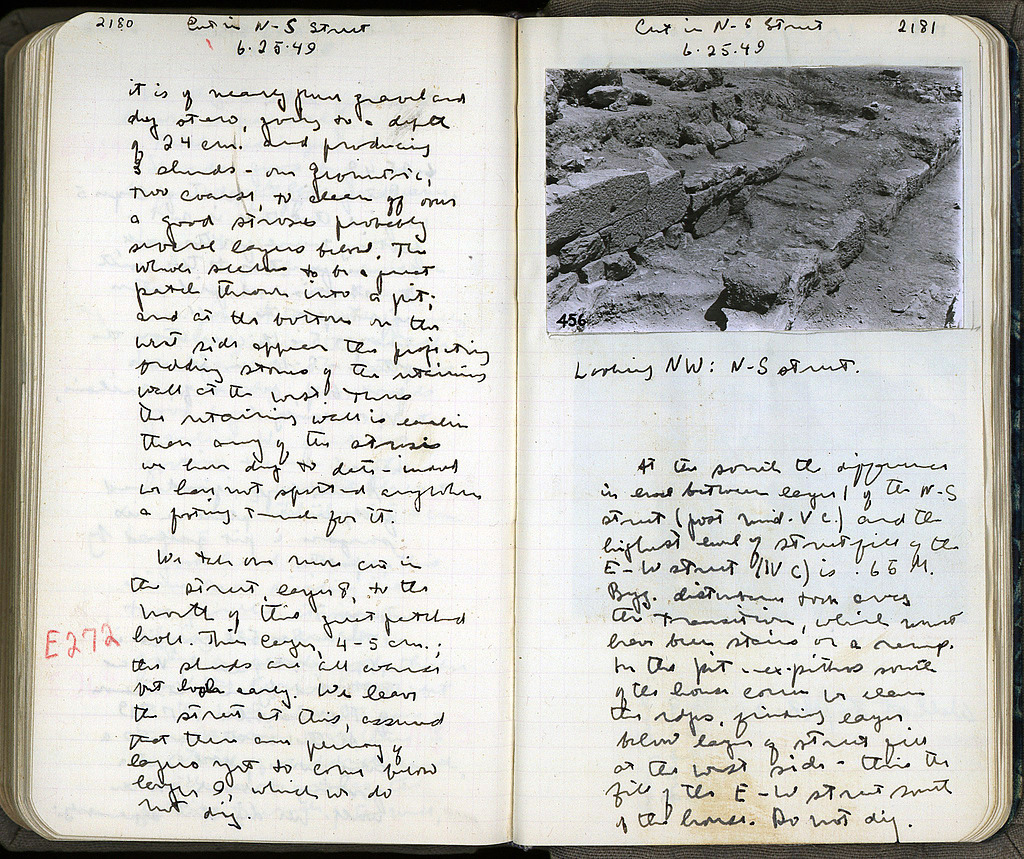 2180
Cut in N-S Street
6.25.49
it is of nearly pure gravel and
dug stereo, going to a depth
of 24 cm. and producing
3 sherds - one geometric,
two coarse, to clean off over
a good strosis probably
several layers below. The
whole seems to be a great
patch thrown into a pit;
and at the bottom on the
west side appear the projecting
bedding stones of the retaining
wall at the west. Thus
the retaining wall is earlier
than any of the strosis
we have dug to date - indeed
we have not spotted anywhere
a footing trench for it.
We take one more cut in
the street, layer 8, to the
north of this great patched
hole. This layer, 4-5 cm.;
the sherds are all coarse
but look early. We leave
the street at this, assured
that there are plenty of
layers yet to come below
layer 9, which we do
not dig.
E272
Cut in N-S Street
2181
6.25.49
456
Looking NW: N-S street.
At the south the difference
in level between layer 1 of the N-S
street (post mid. V C.) and the
highest level of street fill of the
E-W street (IV C) is .65 M.
Byz. disturbance took away
the transition, which must
have been stairs or a ramp.
In the pit - ex-pithos south
of the house corner we clean
the edges, finding layer
below layer of street fill
at the west side - thus the
fill of the E-W street south
of the house. Do not dig.